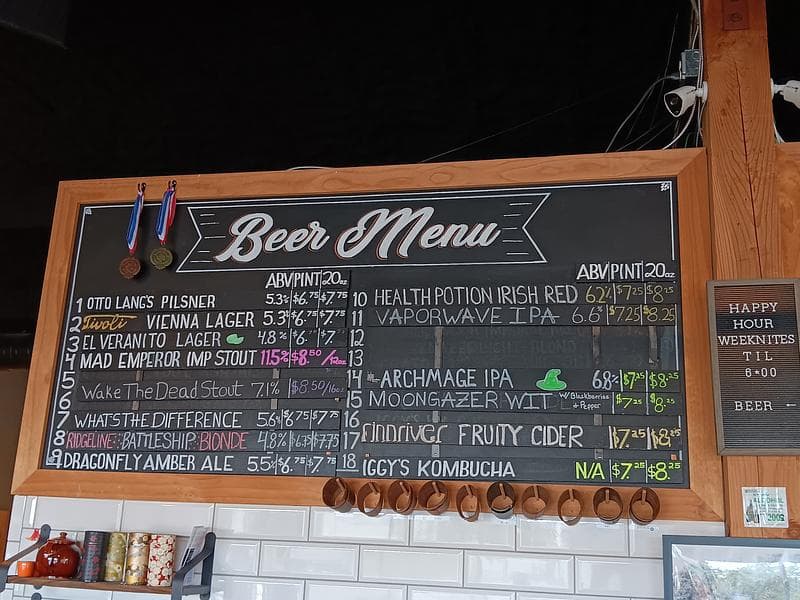 Beer Menu
ABV PINT 20oz
1 OTTO LANG'S PILSNER 5.3% $6.75 $7.75
2 Tivoli VIENNA LAGER 5.3% $6.75 $7.75
3 EL VERANITO LAGER 4.8% $6.75 $7.75
4 MAD EMPEROR IMP STOUT 11.5% $8.50 /10oz
5
6 WAKE THE DEAD STOUT 7.1% $8.50/10oz
7 WHATS THE DIFFERENCE 5.6% $6.75 $7.75
8 RIDGELINE: BATTLESHIP BLONDE 4.8% $6.75 $7.75
9 DRAGONFLY AMBER ALE 5.5% $6.75 $7.75
ABV PINT 20oz
10 HEALTH POTION IRISH RED 6.2% $7.25 $8.25
11 VAPORWAVE IPA 6.6% $7.25 $8.25
12
13
14 ARCHMAGE IPA 6.8% $7.25 $8.25
15 MOONGAZER WIT W/ Blackberries + Pepper $7.25 $8.25
16
17 Finnriver FRUITY CIDER $7.25 $8.25
18 IGGY'S KOMBUCHA N/A $7.25 $8.25
HAPPY
HOUR
WEEKNITES
TIL
6:00
BEER